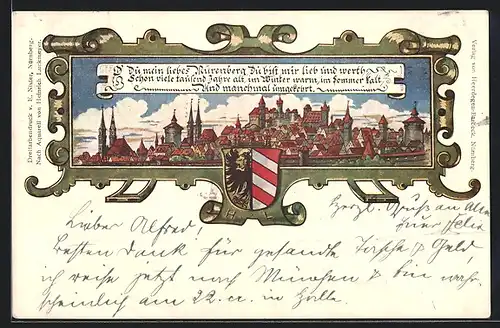 Du mein liebes Nürenberg Du bist mir lieb und werth
Schon viele tausend Jahre alt, im Winter warm, im Sommer kalt
Und manchmal umgekehrt.
Dreifarbendruck v. E. Nister, Nürnberg.
Nach Aquarell von Heinrich
Verlag von Nürnberg.
H L
Herzl. Gruss an Alle
Euer Felix
Lieber Alfred!
Besten Dank für gesandte Tasche & Geld,
ich reise jetzt nach München & bin wahr-
scheinlich am 22. cr. in Halle.